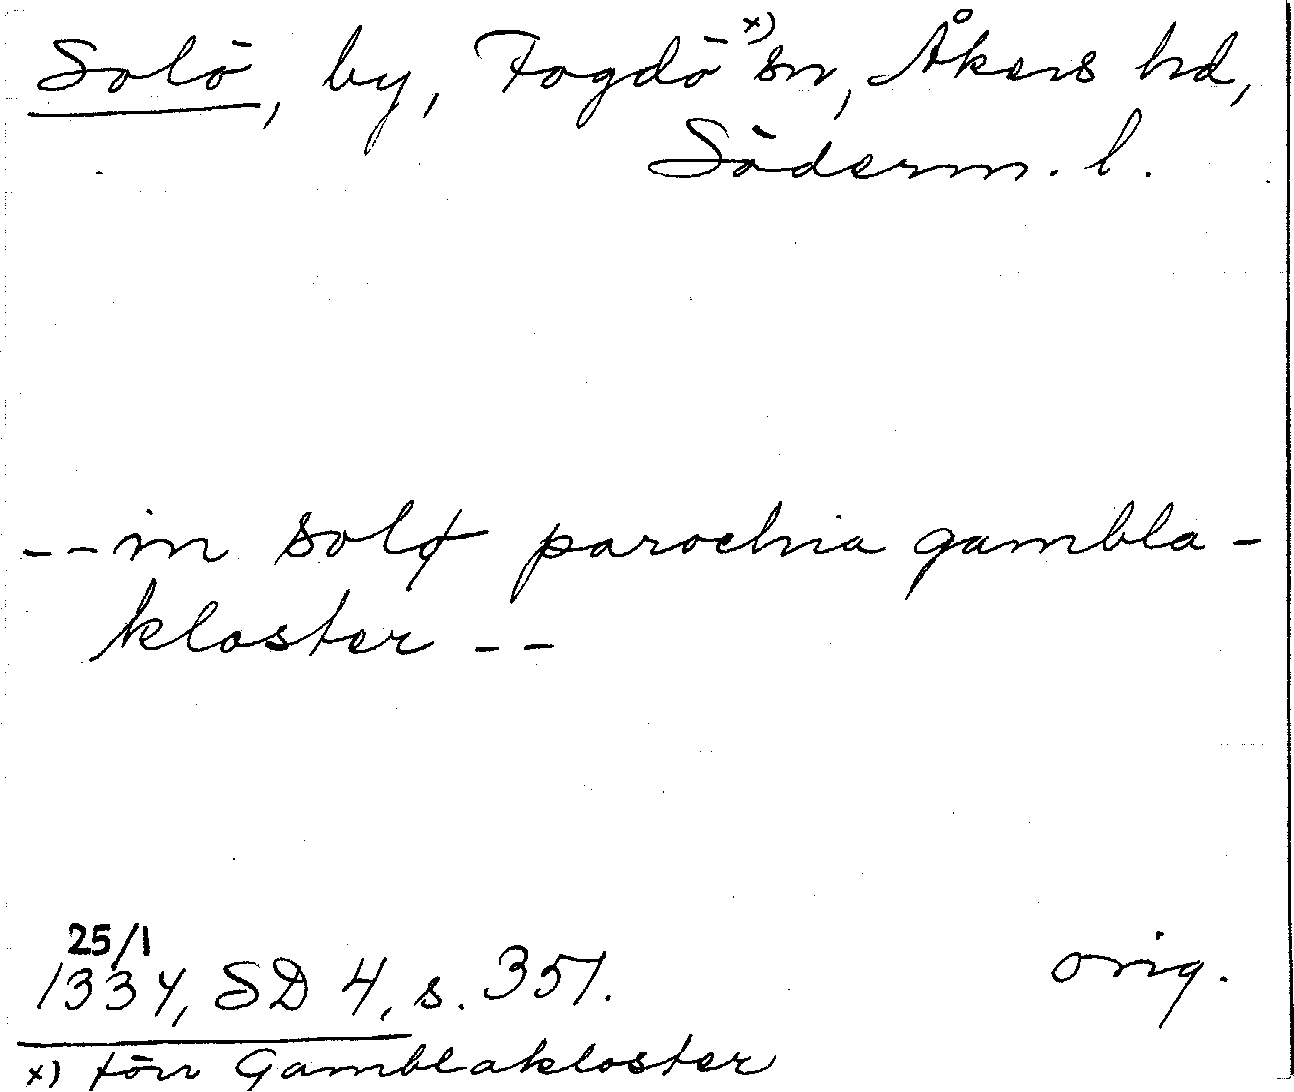 Solö, by, Fogdö x) sn, Åkers hd,
Söderm. l.
--in solø parochia gambla-
kloster --
25/1
1334, SD 4, s. 351.
orig.
x) förr Gamblakloster